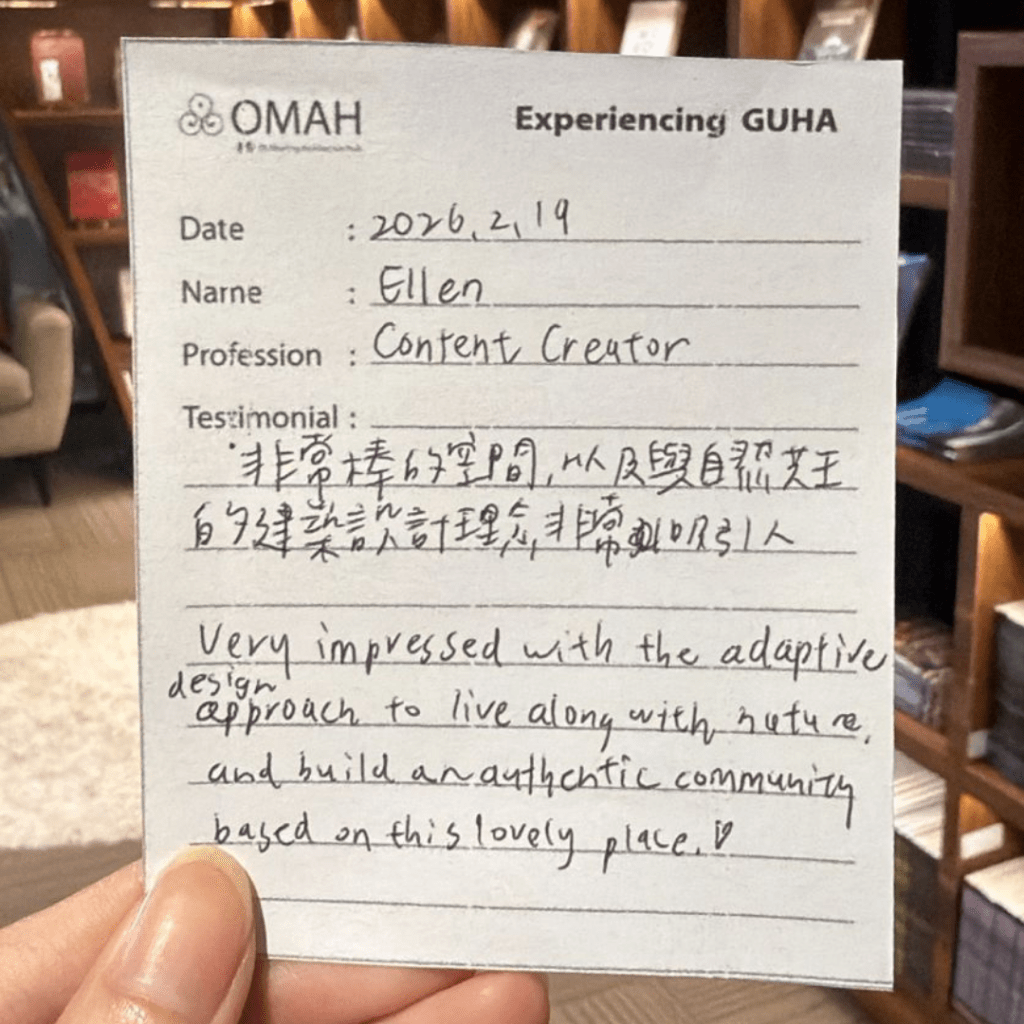 OMAH
Experiencing GUHA
Date : 2026.2.19
Name : Ellen
Profession : Content Creator
Testimonial :
非常棒的空間,以及與自然共生
的建築設計理念,非常吸引人
Very impressed with the adaptive
design
approach to live along with nature,
and build an authentic community
based on this lovely place.♡